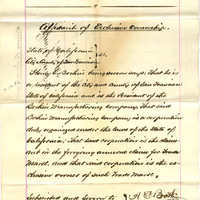 Affidavit of Exclusive Ownership
State of California
City & County of San Francisco } ss.
Henry E. Bothin being sworn says, That he is
a resident of the City and County of San Francisco
State of California and is the President of the
Bothin Manufacturing Company, That said
Bothin Manufacturing Company is a corporation
duly organized under the Laws of the State of
California; That said corporation is the claim-
ant in the foregoing annexed claim for Trade
Mark, and that said corporation is the ex-
clusive owners of such Trade Mark.
Subscribed and sworn to H E Bothin